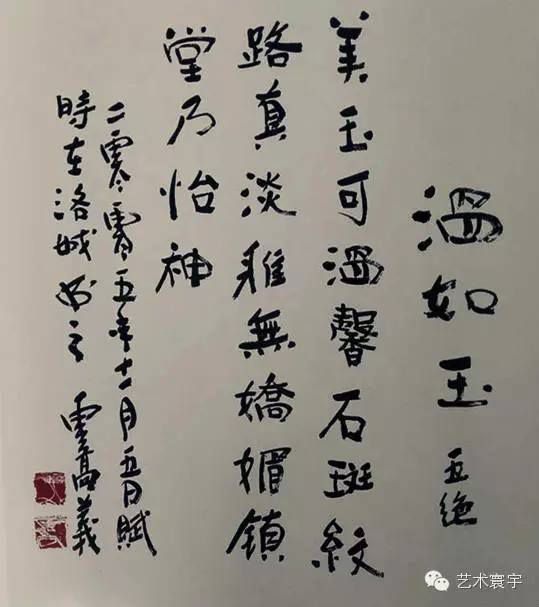 溫如玉 五绝
美玉可溫馨石斑紋
路真淡雅無嬌媚鎮
堂乃怡神
二零零五年十一月五日賦
時在洛城 书之 雲高義
艺术寰宇